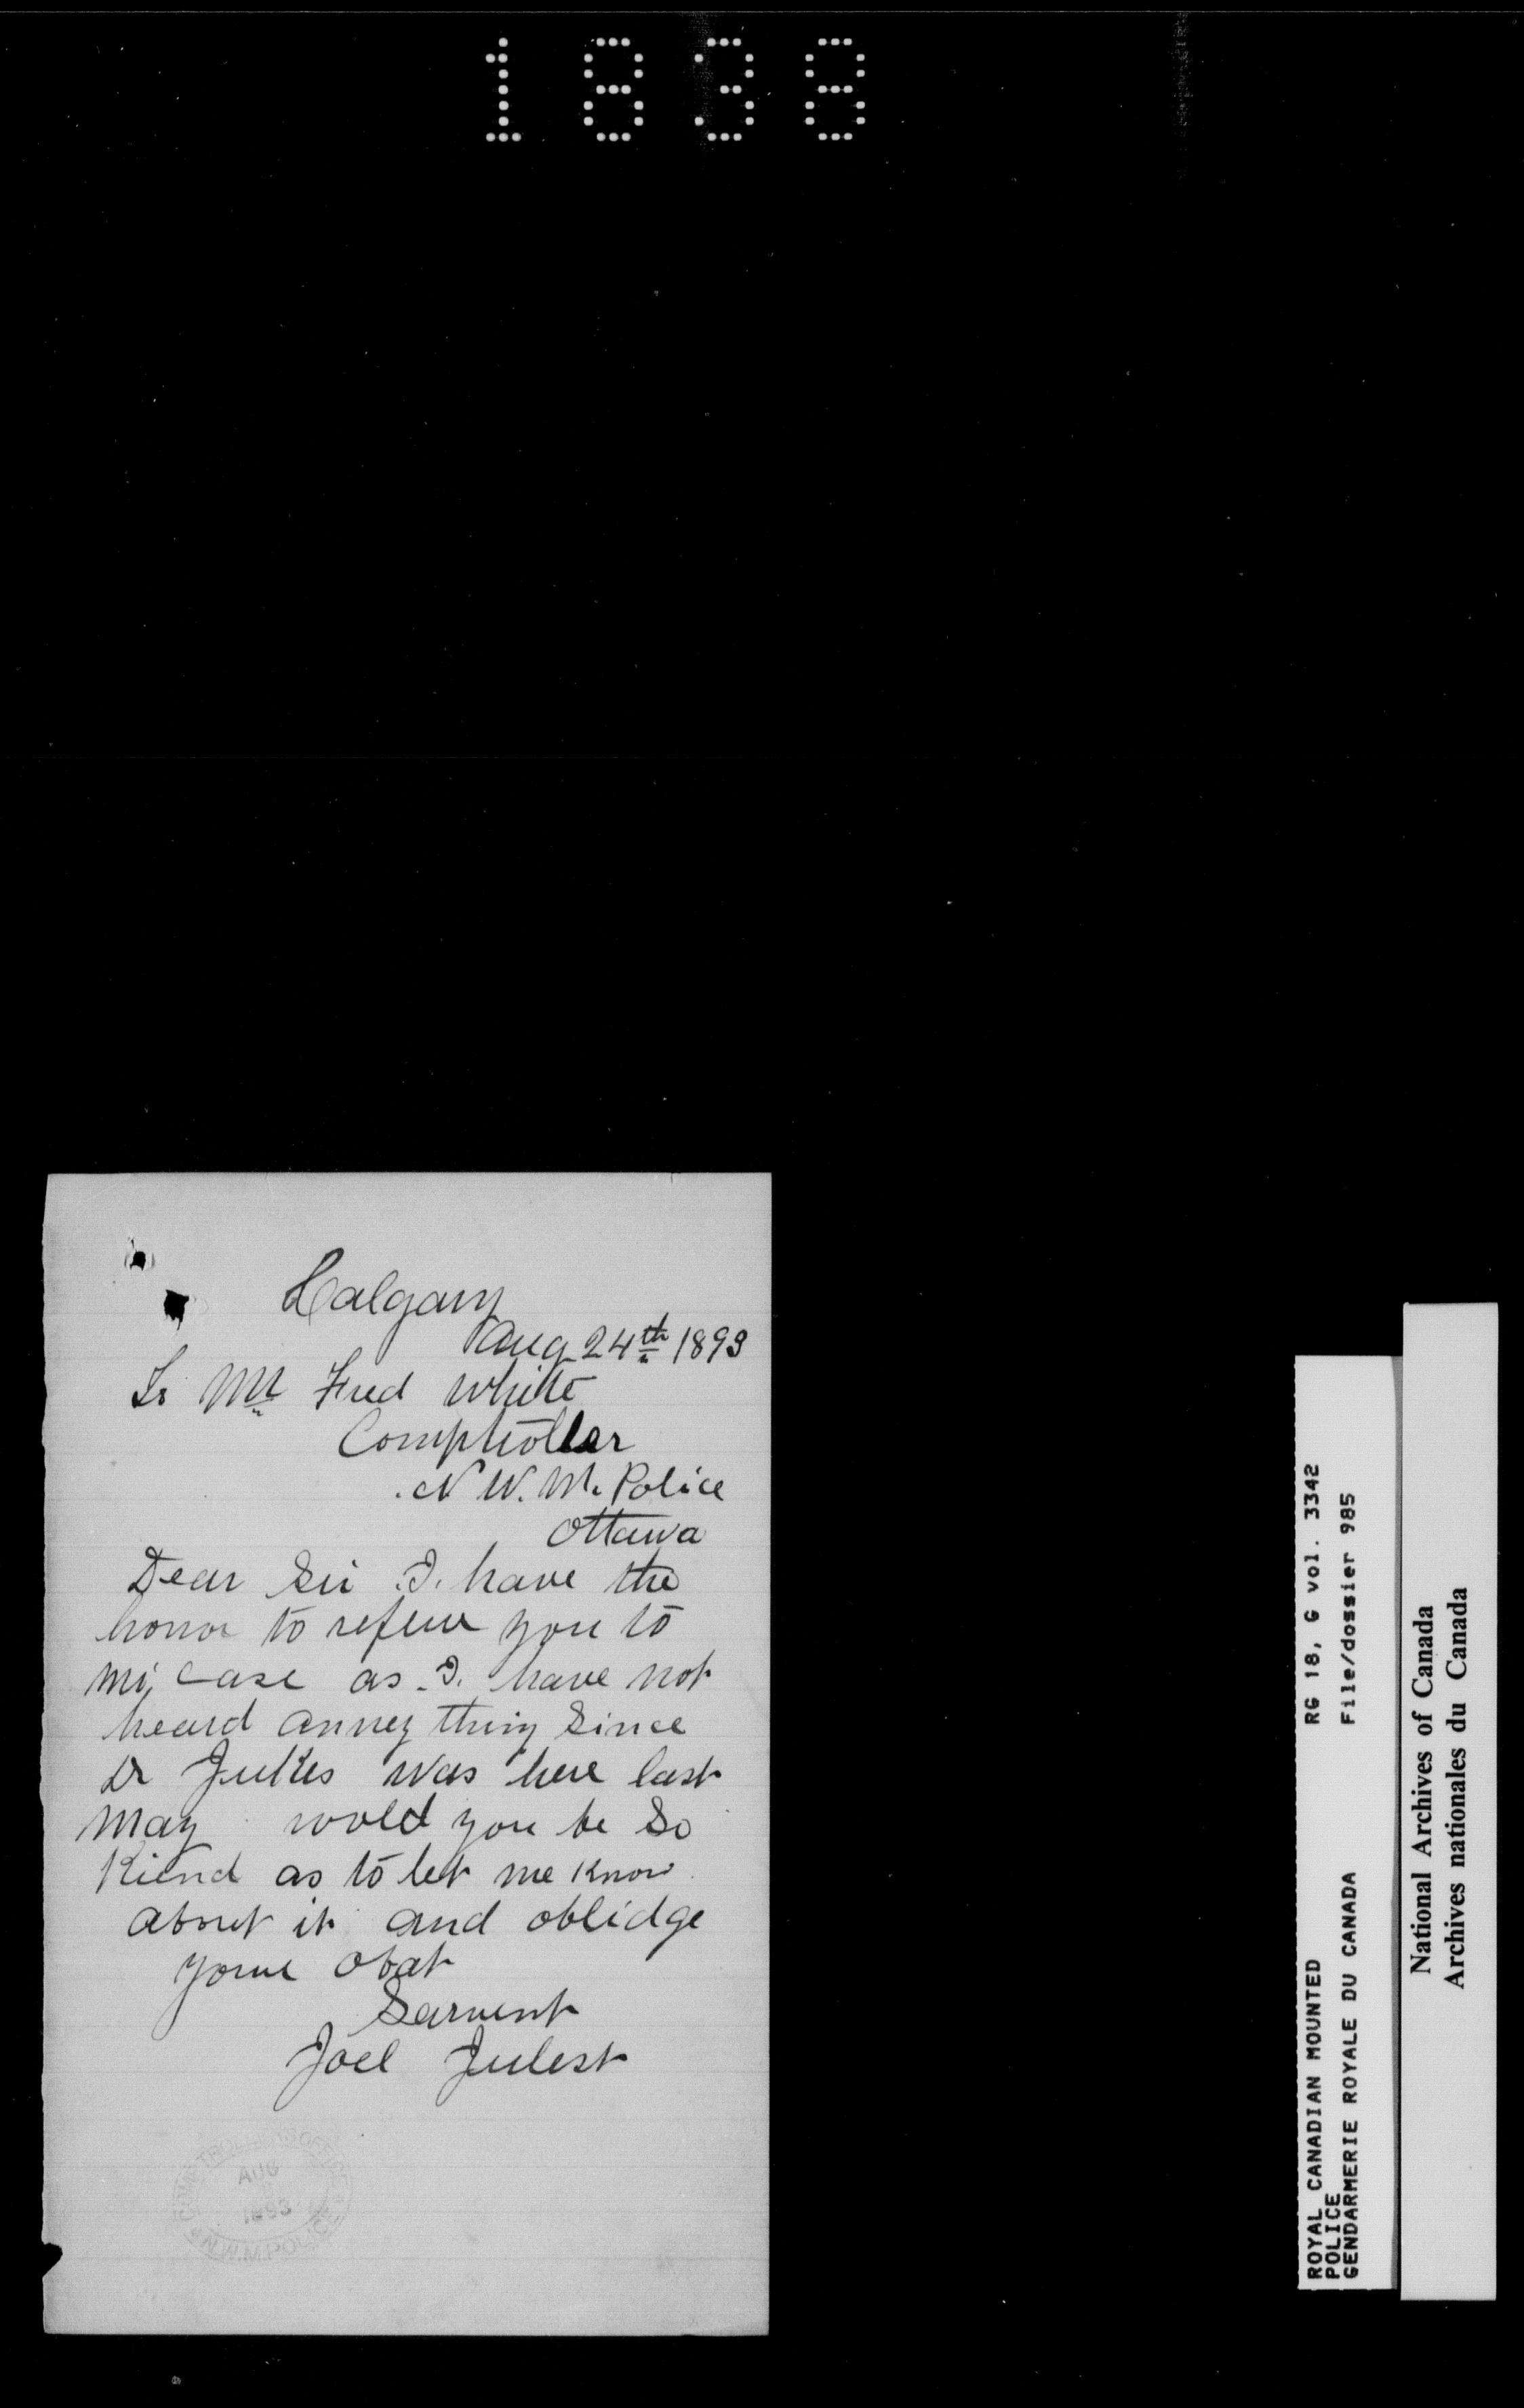 1838
Calgary
Aug 24th 1893
To Mr Fred White
Comptroller
N W. M. Police
Ottawa
Dear Sir I. have the
honor to referr you to
mi, case as I. have not
heard anney thing Since
Dr Jukes was here last
May wold you be So
Kiend as to let me Know
about it and oblidge
your obat
Sarvent
Joel Julest
COMPTROLLER'S OFFICE
AUG
1893
N.W.M. POLICE
ROYAL CANADIAN MOUNTED RG 18, G vol. 3342
POLICE
GENDARMERIE ROYALE DU CANADA File/dossier 985
National Archives of Canada
Archives nationales du Canada